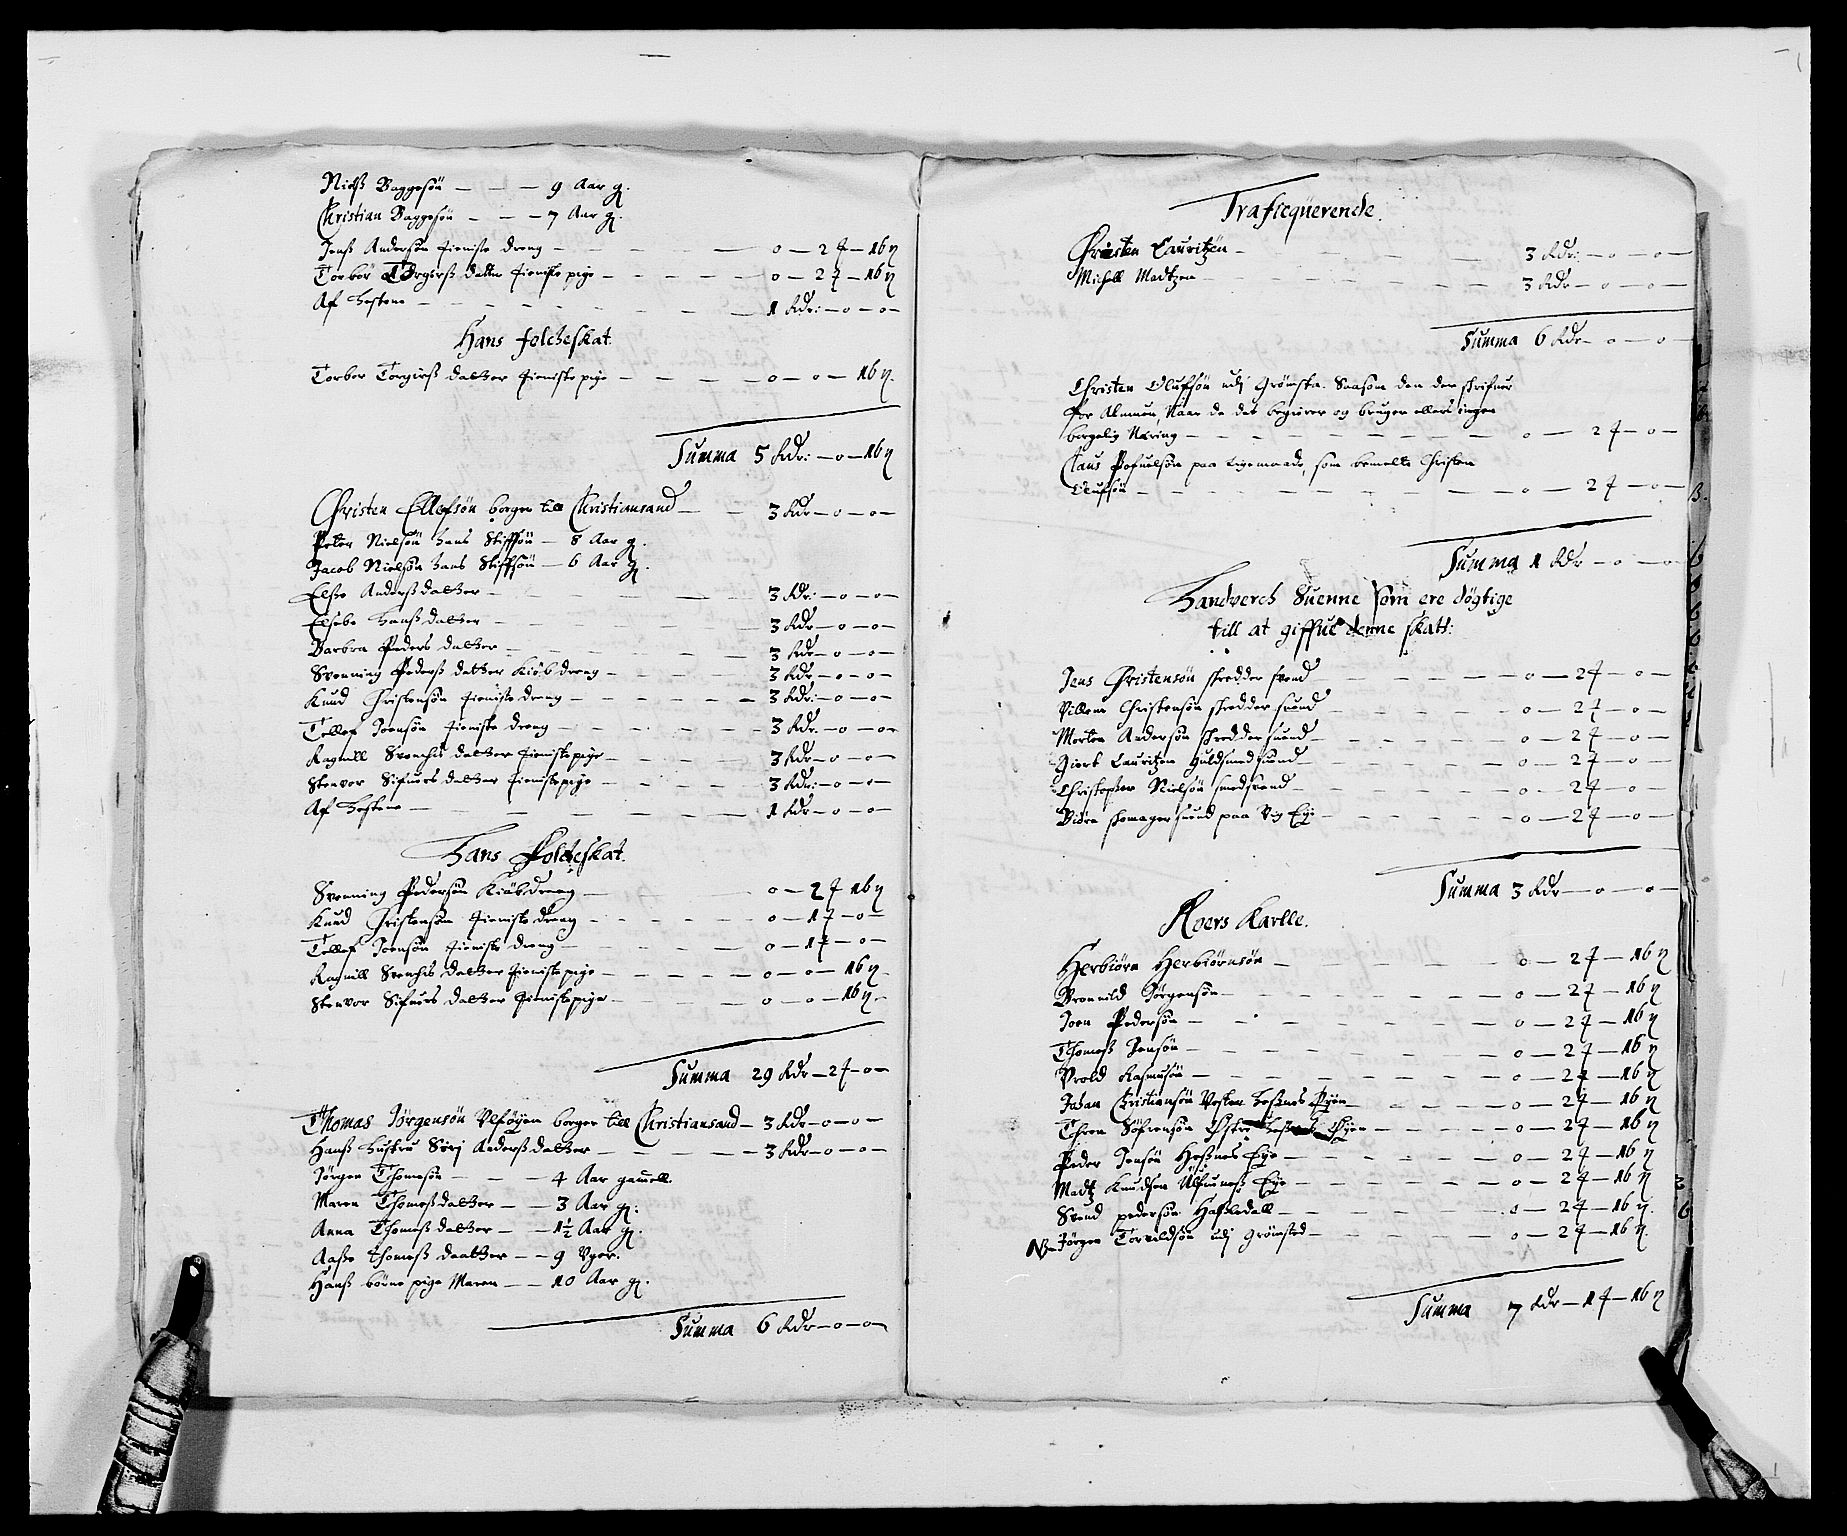 Nielß Baggesøn — — — 9 Aar g.
Christian Baggesøn — — — 7 Aar g.
Jenß Andersøn tieniste dreng — — — 0 — 2 ƒ — 16 ß
Torbor Torgirß datter tieniste pige — — — 0 — 2 ƒ — 16 ß
Af hestene — — — 1 Rdr: — 0 — 0 —
Hans folcheskat.
Torbor Torgirß datter tieniste pige — — — 0 — 0 — 16 ß.
Summa 5 Rdr: — 0 — 16 ß
Christen Ellefsøn borger till Christiansand — — 3 Rdr — 0 — 0 —
Peter Nielsøn hans Stiffsøn — 8 Aar g.
Jacob Nielsøn hans Stiffsøn — 6 Aar g.
Elße Anderßdatter — — — 3 Rdr: — 0 — 0 —
Elsebe Hanßdatter — — — 3 Rdr — 0 — 0 —
Barbra Peders datter — — — 3 Rdr — 0 — 0 —
Svenning Pederß datter Kiøbdreng — — — 3 Rdr — 0 — 0 —
Knud Christensøn tieniste dreng — — — 3 Rdr: — 0 — 0 —
Tellef Joensøn tieniste dreng — — — 3 Rdr. — 0 — 0 —
Ragnill Svenchis datter tieniste pige — — — 3 Rdr — 0 — 0 —
Stenvor Sifuers datter tieniste pige — — — 3 Rdr: — 0 — 0 —
Af hestene — — — 1 Rdr — 0 — 0 —
Hans Folcheskat.
Svenning Pedersøn Kiøbdreng — — — 0 — 2 ƒ 16 ß
Knud Christensøn tieniste dreng — — — 0 — 1 ƒ — 0 —
Tellef Joensøn tieniste dreng — — — 0 — 1 ƒ — 0 —
Ragnill Svenchis datter tieniste pige — — — 0 — 0 — 16 ß —
Stenvor Sifuers datter tieniste pige — — — 0 — 0 — 16 ß —
Summa 29 Rdr — 2 ƒ — 0 —
Thomas Jørgensøn Ulføyen borger till Christiansand — 3 Rdr — 0 — 0 —
Hanß hustru Siri Anderßdatter — — — 3 Rdr — 0 — 0 —
Jørgen Thomesøn — — — 4 Aar gamell.
Maren Thomeßdatter — — 3 Aar g.
Anna Thomeßdatter — — 1½ Aar g.
Aaße Thomeß daatter — — 9 Uger.
Hanß børne pige Maren — — 10 Aar g.
Summa 6 Rdr — 0 — 0 —
Traficqúerende.
Christen Lauritzen — — — 3 Rdr: — 0 — 0 —
Michell Madtzen — — — 3 Rdr — 0 — 0 —
Summa 6 Rdr — 0 — 0 —
Christen Olufsøn udj Grømsta. Saasom den der schrifuer
for Almuen, Naar de det begierer og bruger ellers ingen
borgelig Næring — — — 0 — 2 ƒ — 0 —
Claus Pofuelsøn paa ligemaade, som bemelte Christen
Olufsøn — — — 0 — 2 ƒ — 0 —
Summa 1 Rdr — 0 — 0
Handverch Suenne som ere døgtige
till at giffue denne skatt:
Jens Christensøn skredder svend — — — 0 — 2 ƒ — 0 —
Villem Christensøn skredder suend — — — 0 — 2 ƒ — 0 —
Morten Andersøn skredder suend — — — 0 — 2 ƒ — 0 —
Giert Lauritzen Guldsmed suend — — — 0 — 2 ƒ — 0 —
Christopher Nielsøn smedsvend — — — 0 — 2 ƒ — 0 —
Biørn skomager suend paa Eye — — — 0 — 2 ƒ — 0 —
Summa 3 Rdr — 0 — 0 —
Roers Karlle.
Herbiørn Herbiørnsøn — — — 0 — 2 ƒ — 16 ß
Bronnild Jørgensøn — — — 0 — 2 ƒ — 16 ß
Joen Pedersøn — — — 0 — 2 ƒ — 16 ß
Thomeß Jensøn — — — 0 — 2 ƒ — 16 ß
Vrold Rasmusøn — — — 0 — 2 ƒ — 16 ß
Johan Christiansøn Vester Hesnes Øyen — — — 0 — 2 ƒ — 16 ß
Thron Søfrensøn Øster Øyen — — — 0 — 2 ƒ — 16 ß
Peder Jensøn Heßnes Eye — — — 0 — 2 ƒ — 16 ß
Madtz Knudsen Eye — — — 0 — 2 ƒ — 16 ß
Svend pedersøn Hafsledall — — — 0 — 2 ƒ — 16 ß.
Nz. Jørgen Torvildsøn udj Grømsted — — — 0 — 2 ƒ — 16 ß.
Summa 7 Rdr — 1 ƒ — 16 ß